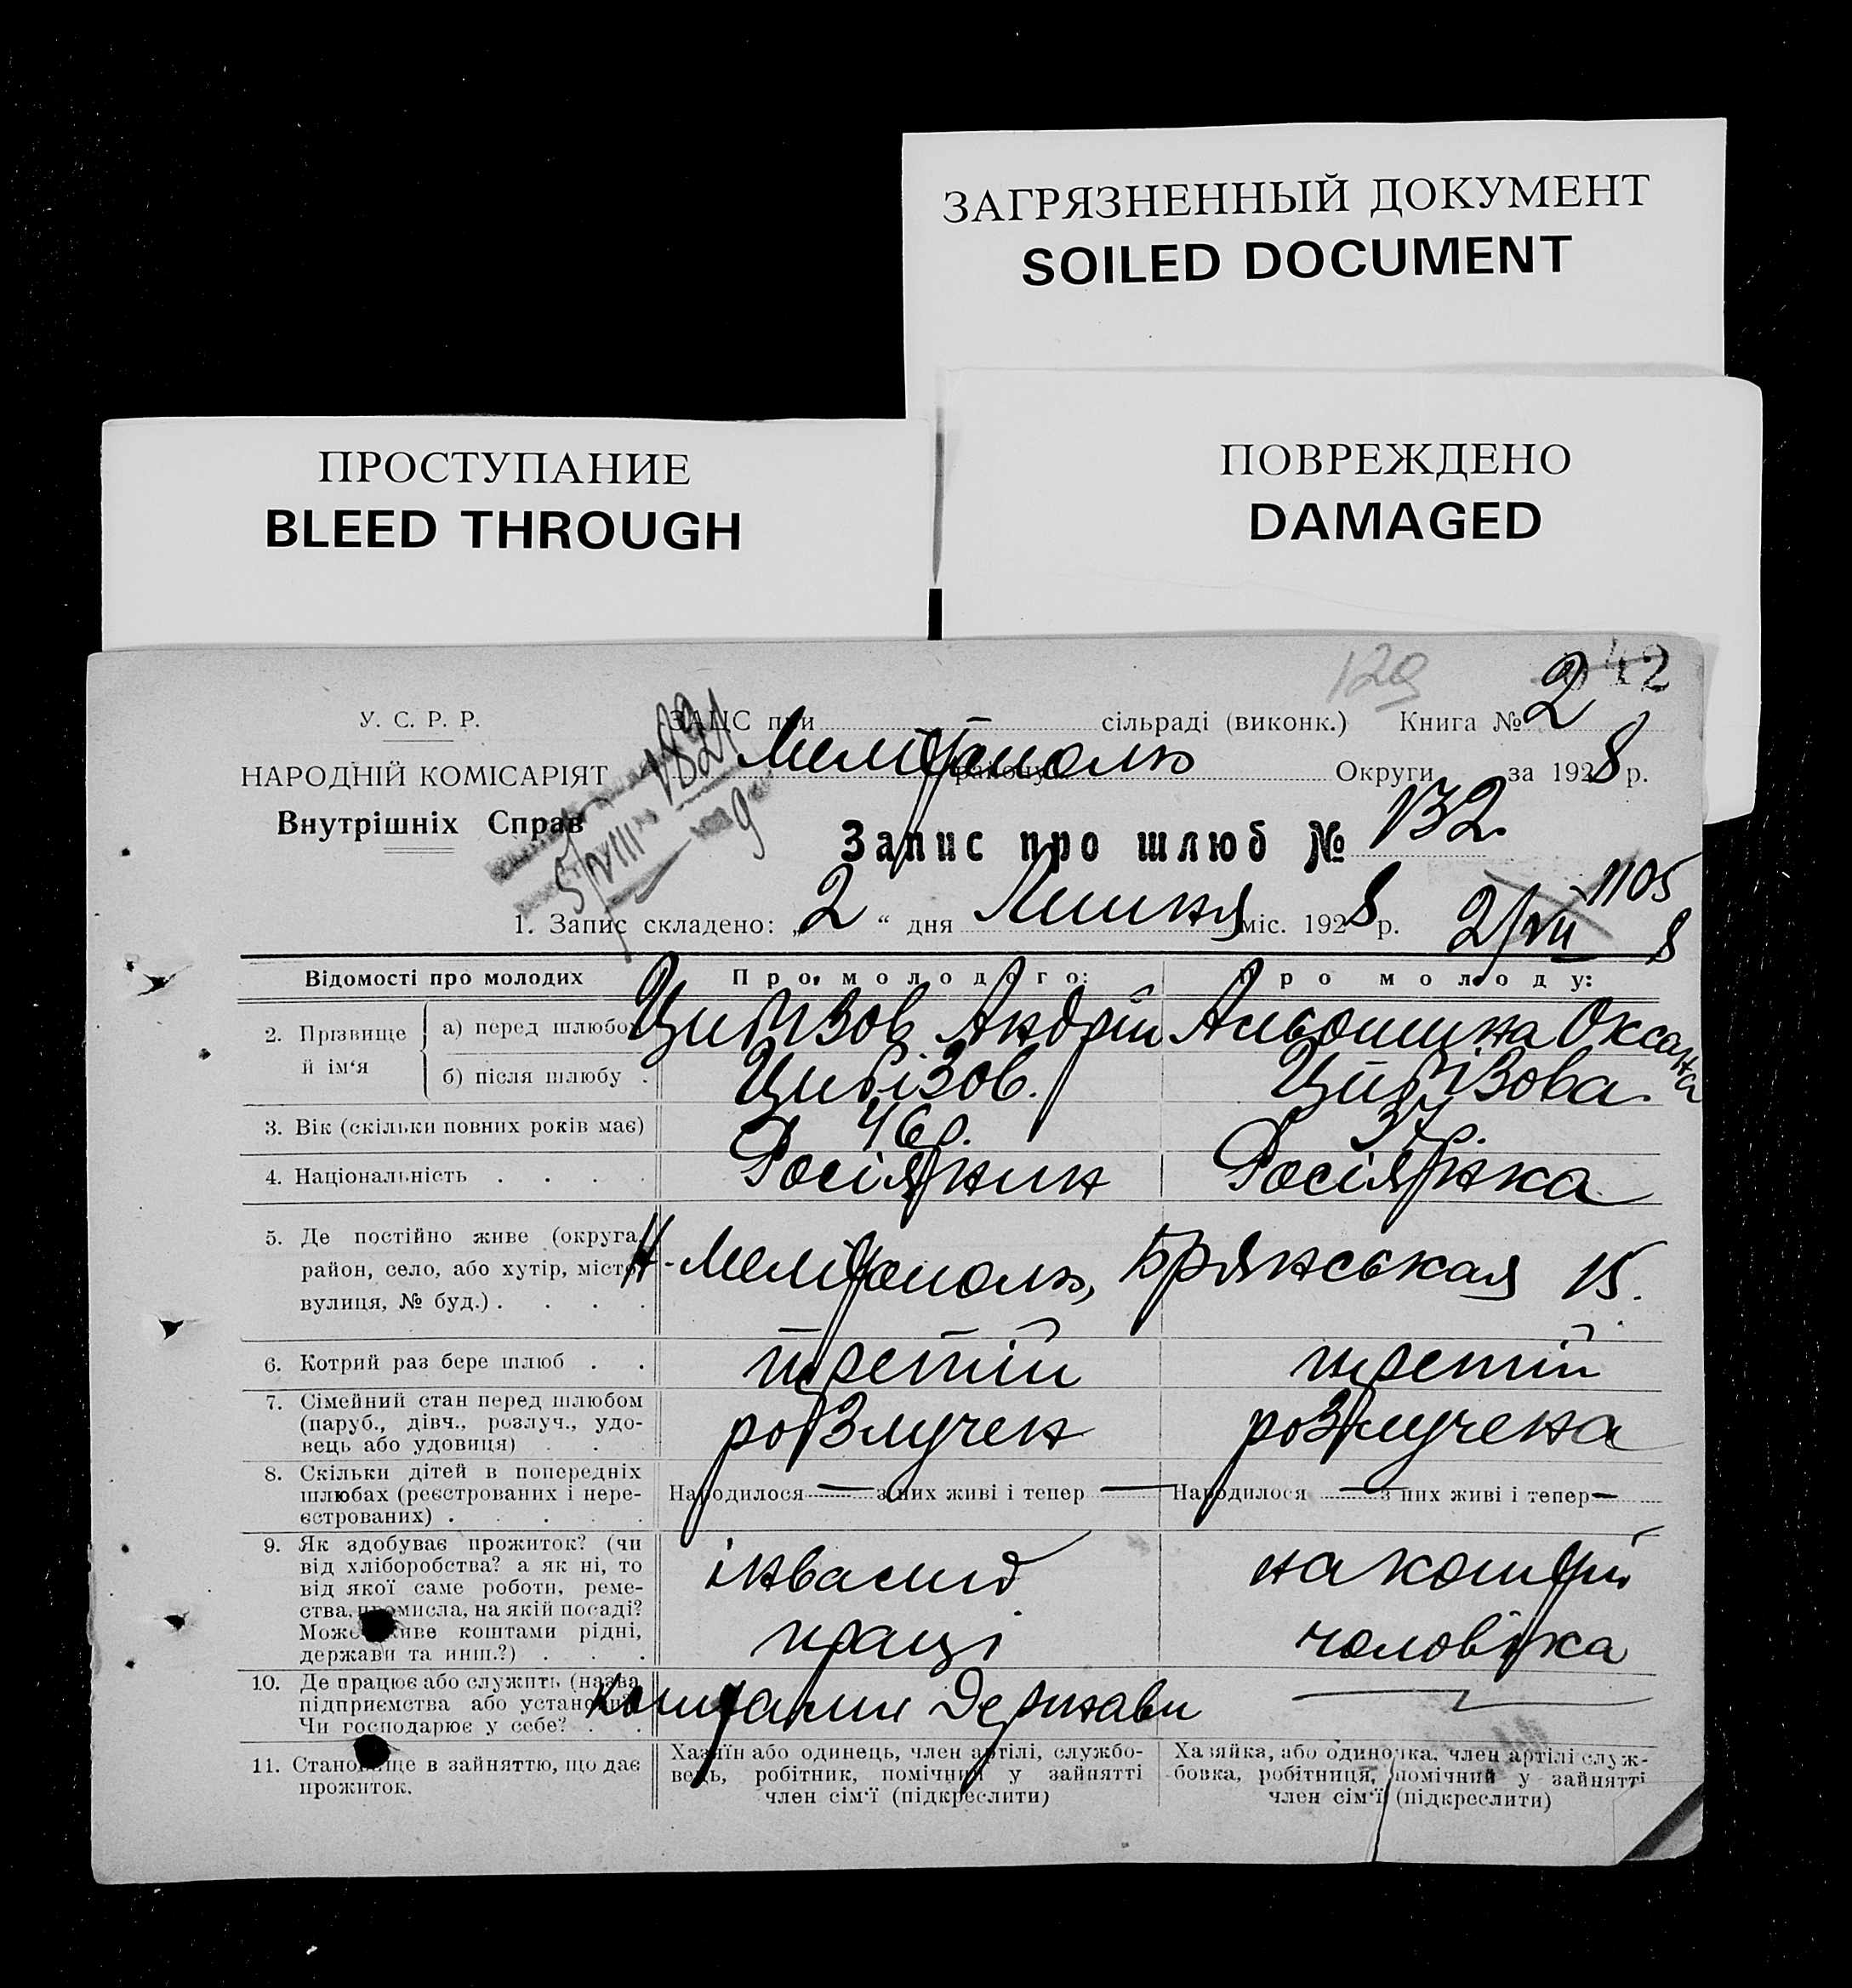 ЗАГРЯЗНЕННЫЙ ДОКУМЕНТ
SOILED DOCUMENT
ПРОСТУПАНИЕ
BLEED THROUGH
ПОВРЕЖДЕНО
DAMAGED
129
242
У. С. Р. Р.
НАРОДНІЙ КОМІСАРІЯТ
Внутрішніх Справ
1821
5/VIII 9
ЗАПС при сільраді (виконк.) Книга № 2
Мелітополь району Округи за 1928 р.
Запис про шлюб № 132
1105
1. Запис складено: „2“ дня Липня міс. 1928 р. 2/VII 8
Відомості про молодих Про молодого: Про молоду:
2. Прізвище й ім‘я
а) перед шлюбом Цибізов Андрій Альошина Оксана
б) після шлюбу . Цибізов. Цибізова.
3. Вік (скільки повних років має) 46 р. 37 р.
4. Національність . . . . Росіянин Росіянка
5. Де постійно живе (округа, район, село, або хутір, місто, вулиця, № буд.) . . . . Мелітополь, Брянськая 15.
6. Котрий раз бере шлюб . . третій третій
7. Сімейний стан перед шлюбом (паруб., дівч., розлуч., удовець або удовиця) . . . розлучен розлучена
8. Скільки дітей в попередніх шлюбах (реєстрованих і нереєстрованих) . . . . . Народилося — з них живі і тепер — Народилося — з них живі і тепер —
9. Як здобуває прожиток? (чи від хліборобства? а як ні, то від якої саме роботи, ремества, промисла, на якій посаді? Може живе коштами рідні, держави та инш.?) . . . інвалид праці на кошти чоловіка
10. Де працює або служить (назва підприємства або установи). Чи господарює у себе? . . коштами Держави —
11. Становище в зайняттю, що дає прожиток.
Хазяїн або одинець, член артілі, службовець, робітник, помічний у зайнятті член сім‘ї (підкреслити)
Хазяйка, або одиночка, член артілі службовка, робітниця, помічний у зайнятті член сім‘ї (підкреслити)